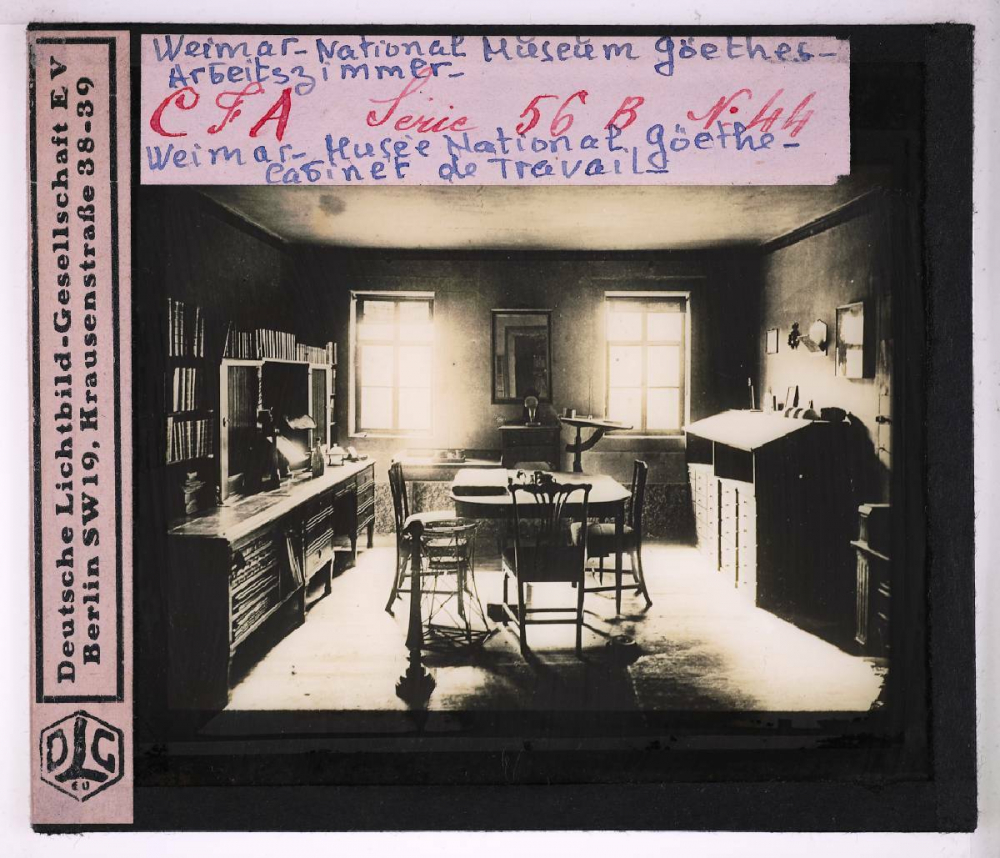 Weimar-National Museum Göethes-
Arbeitszimmer-
CFA Serie 56 B No 44
Weimar- Musée National Göethe-
Cabinet de Travail-
Deutsche Lichtbild-Gesellschaft E V
Berlin SW19, Krausenstraße 38-39
DLG
EV